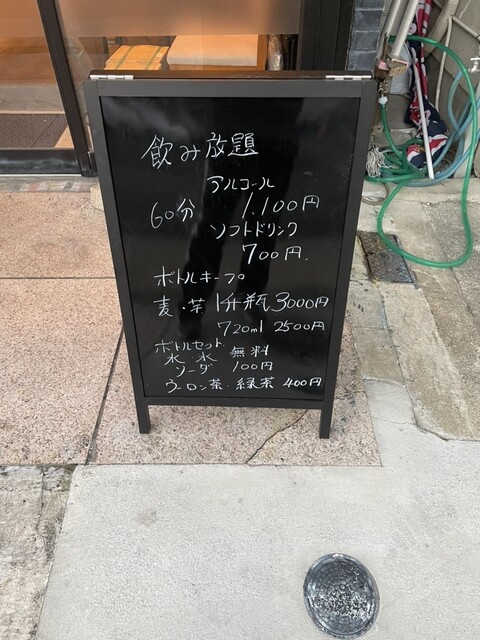 飲み放題
アルコール
60分 1,100円
ソフトドリンク
700円.
ボトルキープ
麦・芋 1升瓶 3000円
720ml 2500円
ボトルセット
水・氷 無料
ソーダ 100円
ウーロン茶・緑茶 400円